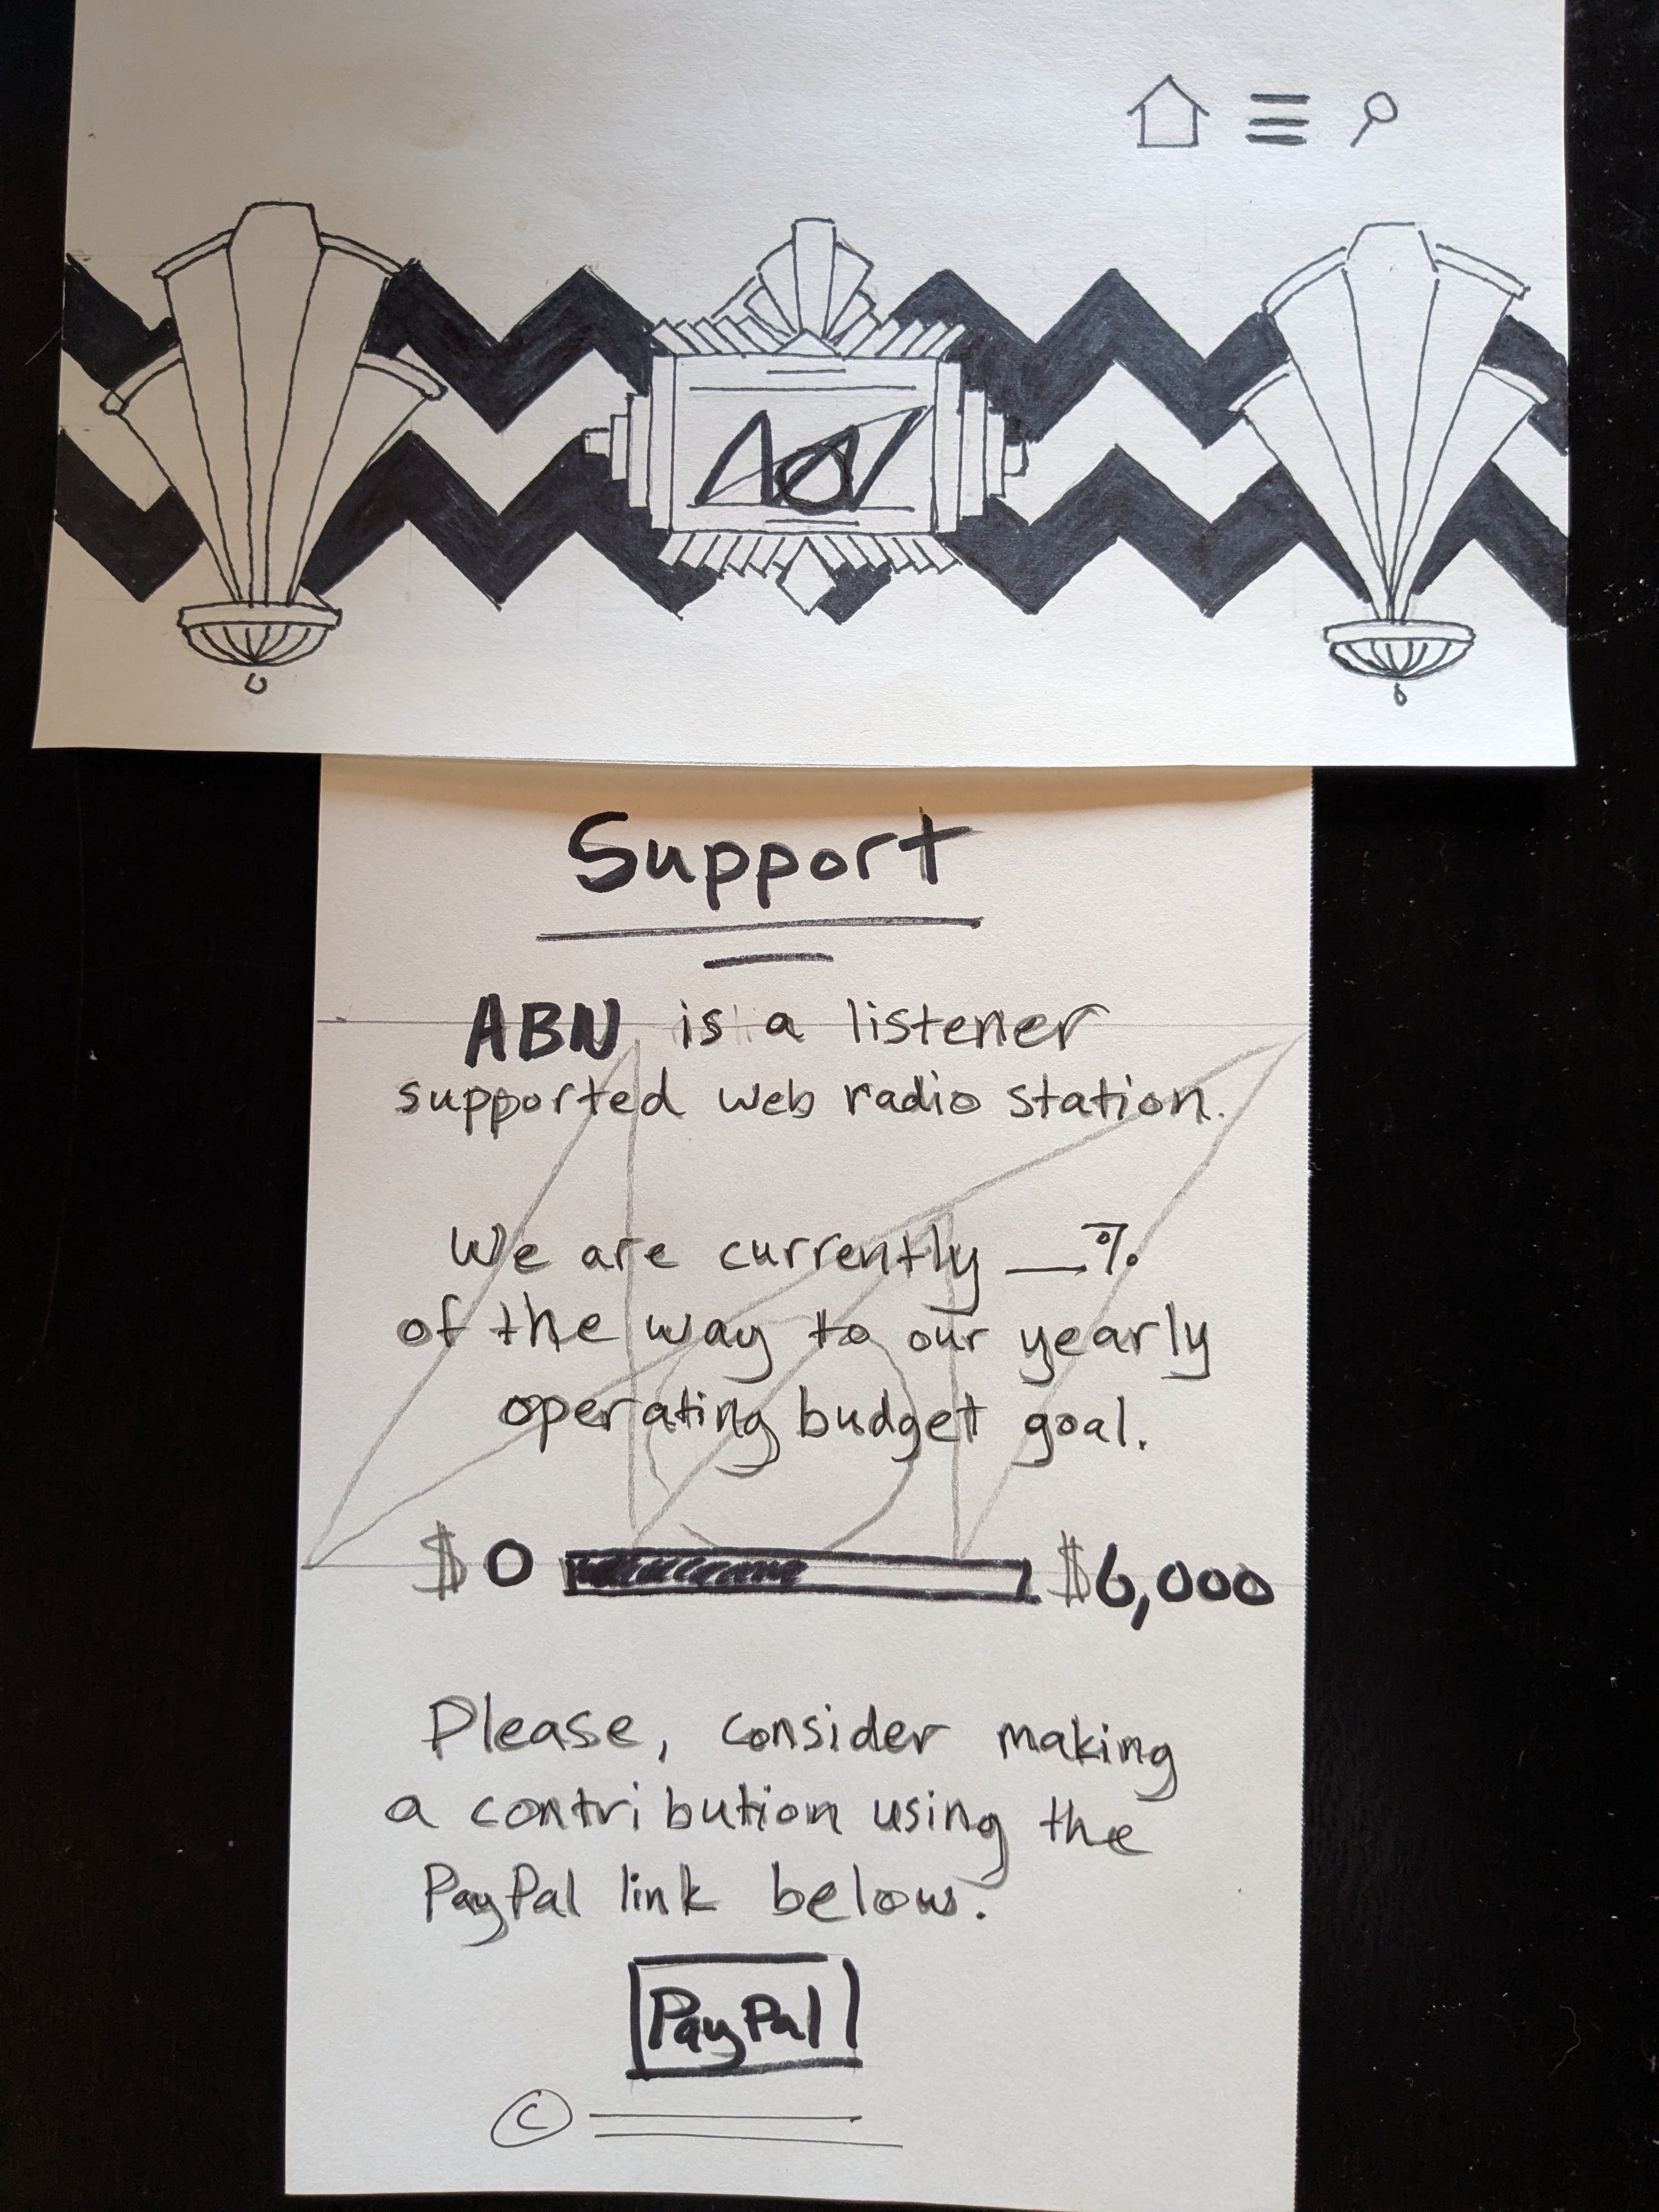 Support
ABN is a listener
supported web radio station.
We are currently __%
of the way to our yearly
operating budget goal.
$0 $6,000
Please, consider making
a contribution using the
PayPal link below.
PayPal
©